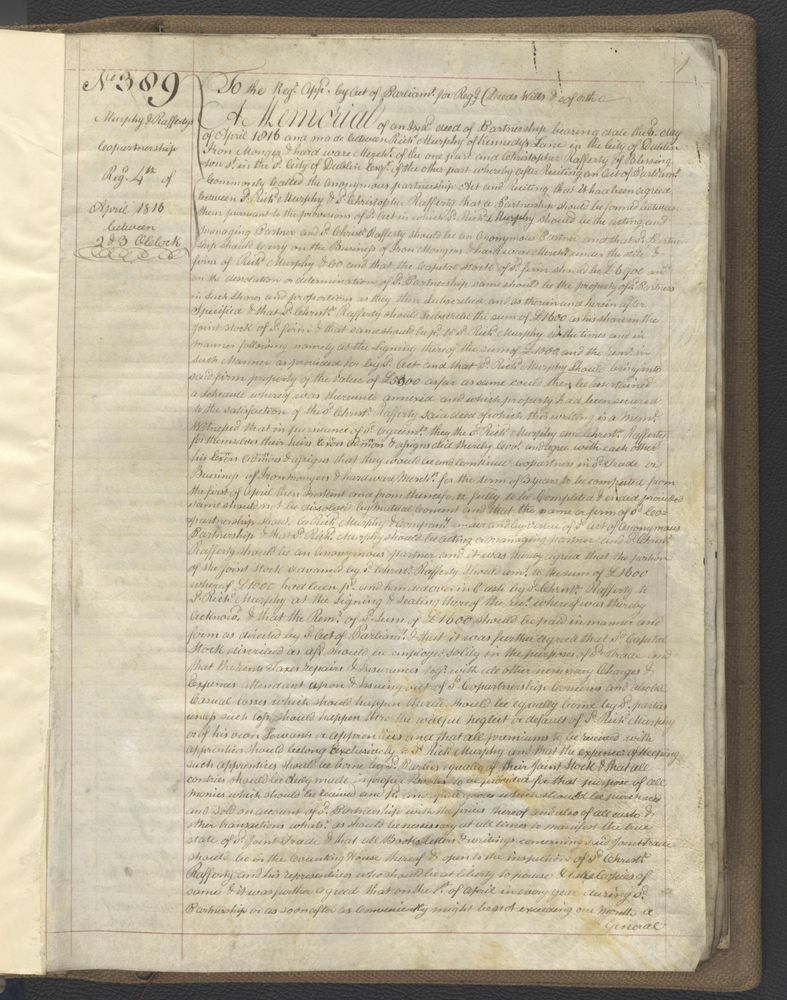 1
No 389
Murphy & Raffertys
Copartnership
Regd 4th of
April 1816
between
2 & 3 OClock
To the Regr. Appd. by Act of Parliamt. for Regg. Deeds Wills & so forth
A Memorial of an Indd. deed of Partnership bearing date the 3d. day
of April 1816 and made between Richd. Murphy of Kennedys Lane in the City of Dublin
Iron Monger & hard ware Mercht. of the one part and Christopher Rafferty of Blessing
ton St. in the Sd. City of Dublin Esqr. of the other part whereby after Reciting an Act of Parliamt.
Commonly Called the Anonymous partnership Act and Reciting that it had been agreed
between Sd. Richd. Murphy & Sd. Christopher Rafferty that a Partnership should be formed between
them pursuant to the provisions of Sd. Act in which Sd. Richd. Murphy should be the acting and
managing Partner and Sd. Christr. Rafferty should be an Anonymous Partner and that Sd. Partner
ship should carry on the Business of Iron Mongers & hard ware Merchts. under the stile &
firm of Richd. Murphy & Co. and that the Capital Stock of Sd. firm should be and
on the dissolution or determination of Sd. Partnership same should be the property of Sd. Partners
in Such Shares and proportions as they then Subscribed and as therein and herein after
Specified & that Sd. Christr. Rafferty should Subscribe the sum of £1600 as his share in the
joint stock of Sd. firm & that same should be pd. to Sd. Richd. Murphy at the times and in
manner following namely at the Signing thereof the sum of £1000 and the remr. in
such Manner as provided for by Sd. Act and that Sd. Richd. Murphy Should bring into
said firm property of the Value of as far as same could then be ascertained
a schedule whereof was thereunto annexed and which property had been
to the satisfaction of the Sd. Christr. Rafferty Said deed of which this writing is a Meml.
Witnessed that in pursuance of Sd. Agreemt. they the Sd. Richd. Murphy and Christr. Rafferty
for themselves their heirs Exōrs Admōrs & assigns did thereby Covt. and agree with each other
his Exōrs Admōrs & assigns that they would be and continue Copartners in Sd. Trade or
Business of Ironmongers & hardware Merchts. for the term of years to be computed from
the first of April then Instant and from thenceforth fully to be Completed & ended provided
same should not be dissolved by mutual Consent and that the name or firm of Sd. Co
partnership should be Richd. Murphy & Company under and by virtue of Sd. Act of Anonymous
Partnership & that Sd. Richd. Murphy should be acting & managing partner and Sd. Christr.
Rafferty should be an Anonymous partner and it was thereby agreed that the portion
of the joint Stock advanced by Sd. Christr. Rafferty should amt. to the sum of £1600
whereof £1000 had been pd. and handed over in Cash by Sd. Christr. Rafferty to
Sd. Richd. Murphy at the Signing & Sealing thereof the Rect. whereof was thereby
Acknowd. & that the Remr. of Sd. Sum of £1600 should be paid in manner and
form as directed by Sd. Act of Parliamt. & that it was further agreed that Sd. Capital
Stock as afd. should be employed solely in the purposes of Sd. Trade and
that the rents Taxes repairs & Insurances togr. with all other necessary Charges &
Expences attendant upon & Issuing out of Sd. Copartnership Concerns and also all
Casual losses which should happen therein should be equally borne by Sd. parties
unless such loss should happen thro the wilful neglect or default of Sd. Richd. Murphy
or of his own Servants or apprentices and that all premiums to be received with
apprentices should belong Exclusively to Sd. Richd. Murphy and that the expence of keeping
such apprentices should be borne by Sd. Parties equally of their joint Stock & that all
entries should be duly made in proper Books to be provided for that purpose of all
monies which should be received and pd. and of all goods which should be purchased
and sold on account of Sd. Partnership with the prices thereof and also of all cash &
other transactions whatsr. as should be necessary at all times to manifest the true
state of Sd. Joint Trade & that all Books letters & writings concerning said Joint Trade
should be in the Counting House thereof & open to the inspection of Sd. Christr.
Rafferty and his representives who should be at liberty to peruse & take Copies of
same & it was further agreed that on the 1st. of April in every year during Sd.
Partnership or as soon after as Conveniently might be not exceeding one Month a
General